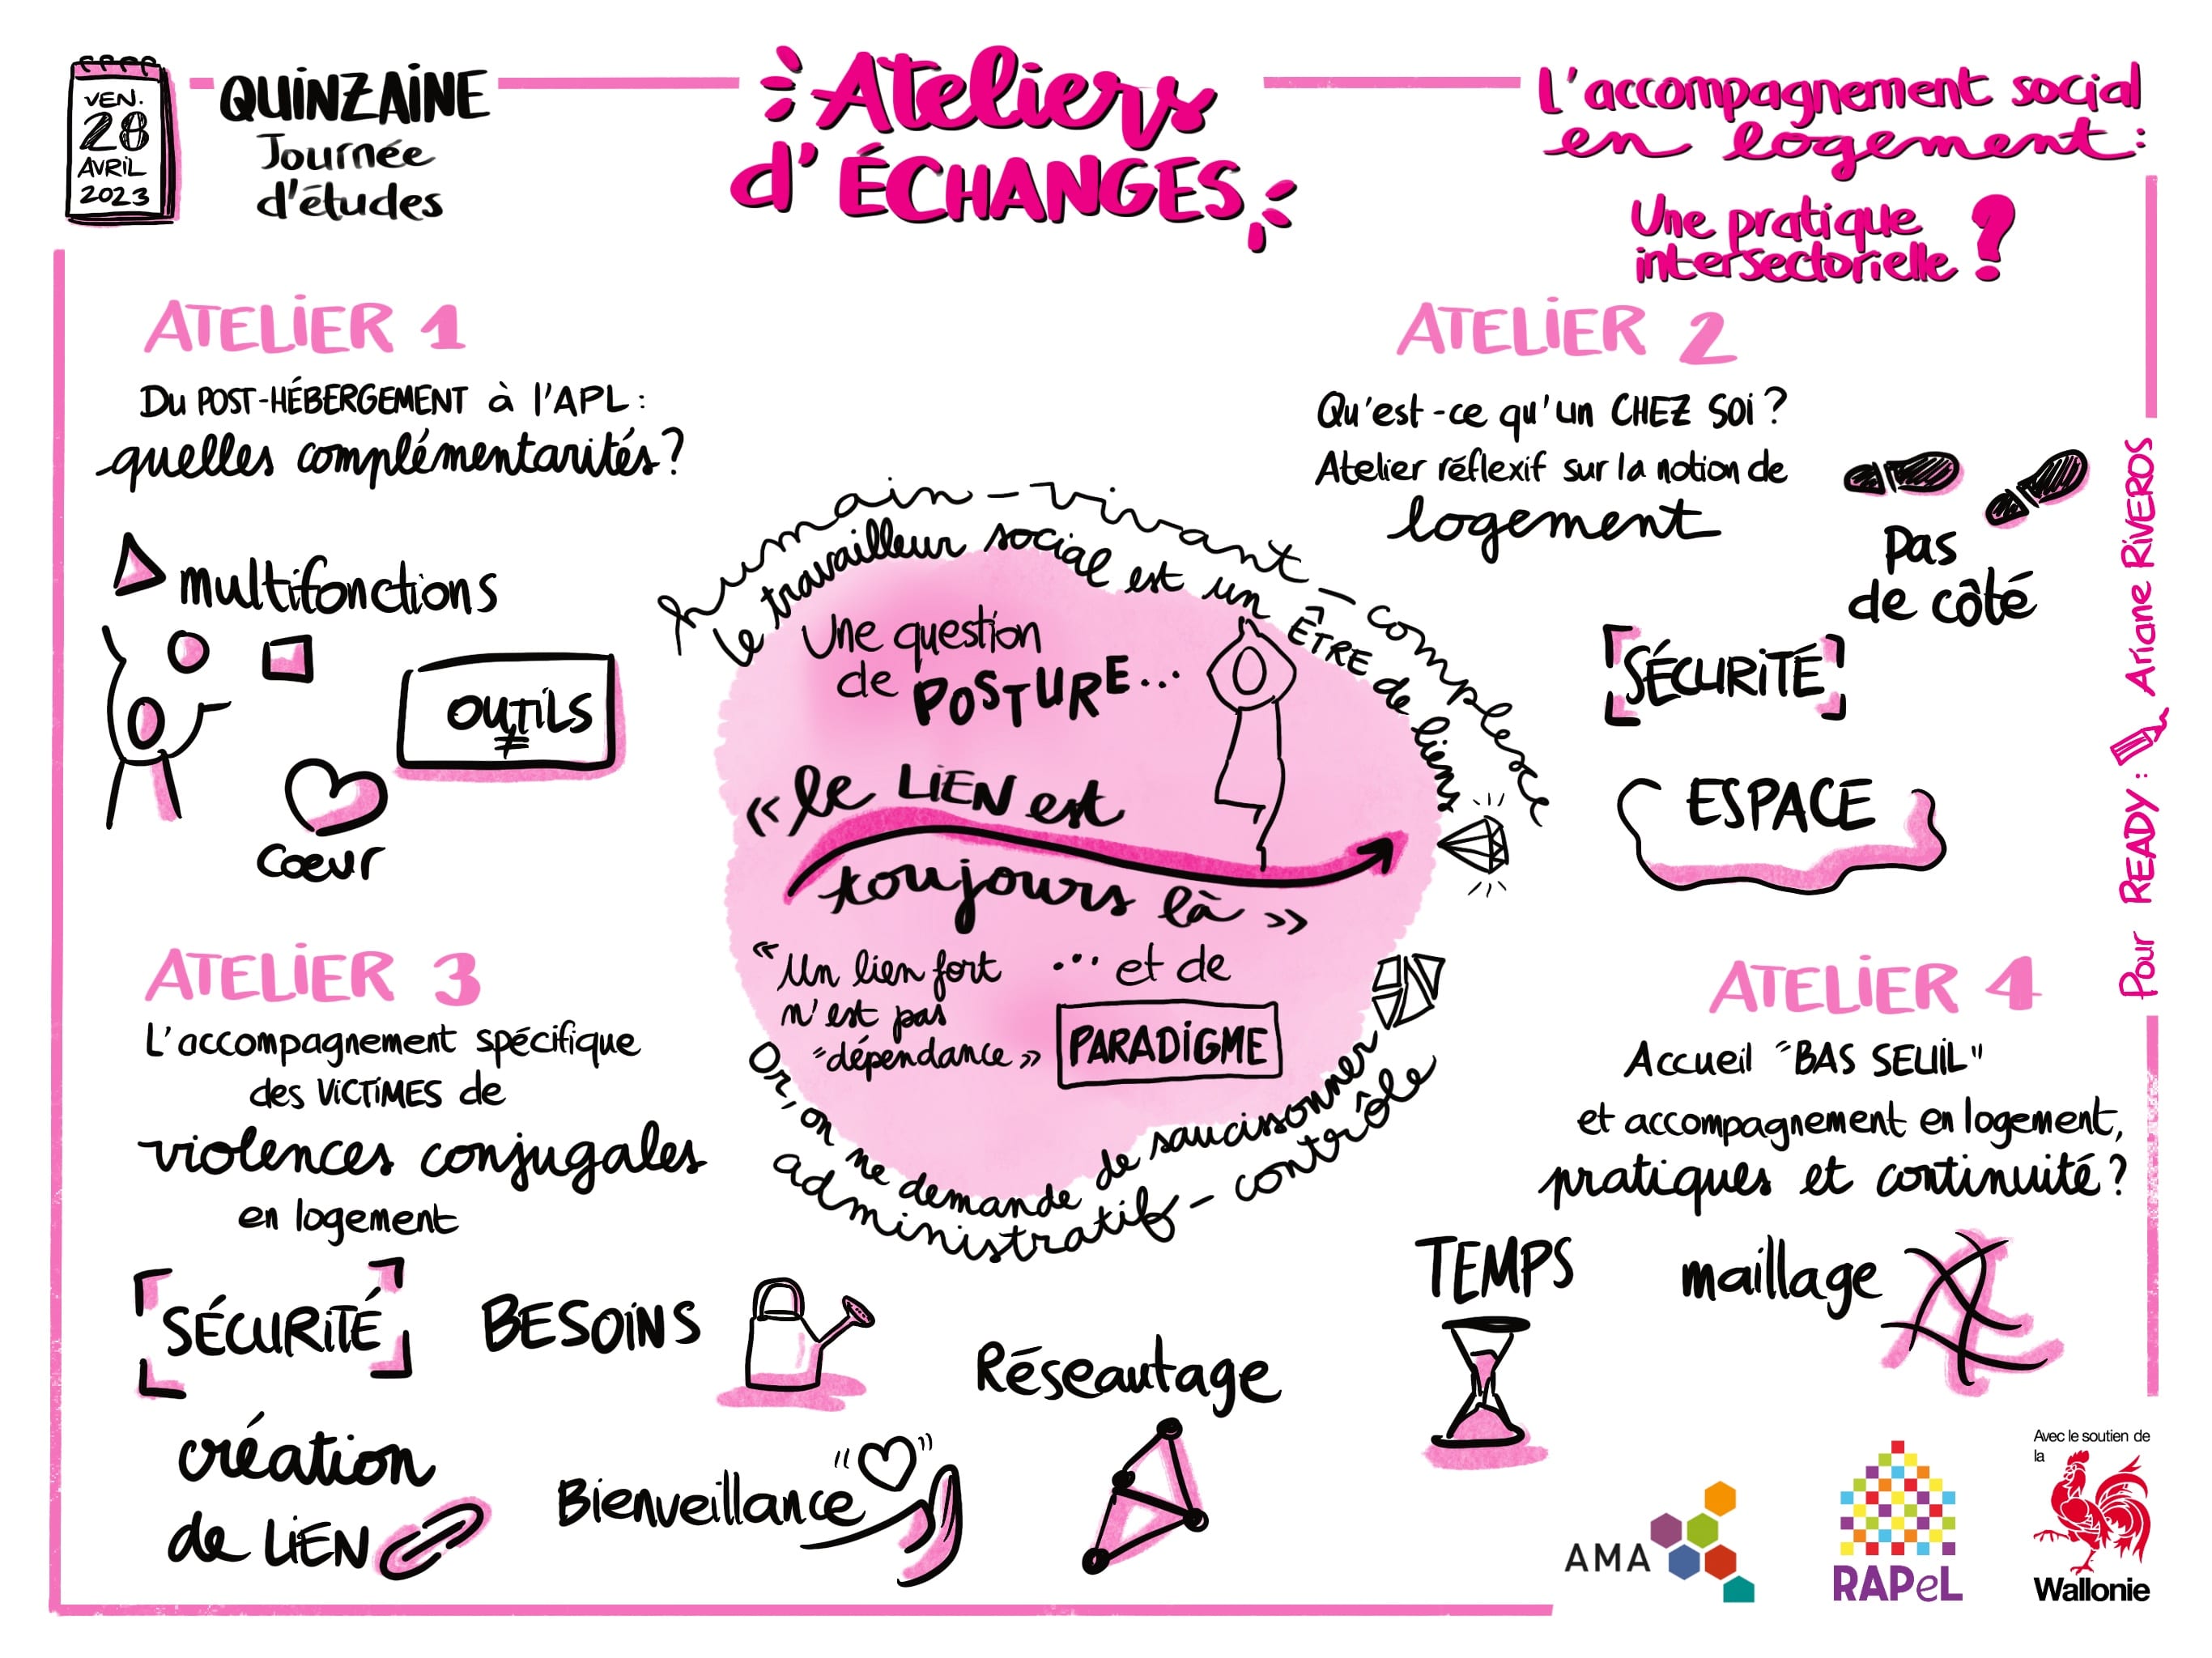 VEN.
28
AVRIL
2023
QUINZAINE
Journée
d'études
Ateliers
d'ÉCHANGES
L'accompagnement social
en logement :
Une pratique
intersectorielle ?
ATELIER 1
Du POST-HÉBERGEMENT à l'APL :
quelles complémentarités ?
multifonctions
OUTILS
≠
Coeur
ATELIER 2
Qu'est-ce qu'un CHEZ SOI ?
Atelier réflexif sur la notion de
logement
Pas
de côté
[SÉCURITÉ]
ESPACE
humain - vivant - complexe
Le travailleur social est un ÊTRE de liens
Une question
de POSTURE...
« le LIEN est
toujours là »
« Un lien fort
n'est pas
"dépendance »
... et de
PARADIGME
Or, on ne demande de saucissonner
administratif - contrôle
ATELIER 3
L'accompagnement spécifique
des VICTIMES de
violences conjugales
en logement
[SÉCURITÉ]
BESOINS
création
de LIEN
Bienveillance
Réseautage
ATELIER 4
Accueil "BAS SEUIL"
et accompagnement en logement,
pratiques et continuité ?
TEMPS
maillage
Pour READY : Ariane RIVEROS
AMA
RAPeL
Avec le soutien de
la
Wallonie